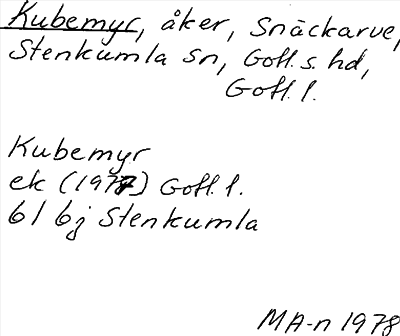 Kubemyr, åker, Snäckarve,
Stenkumla sn, Gotl. s. hd,
Gotl. l.
Kubemyr
ek (1977) Gotl. l.
6I 6j Stenkumla
MA-n 1978